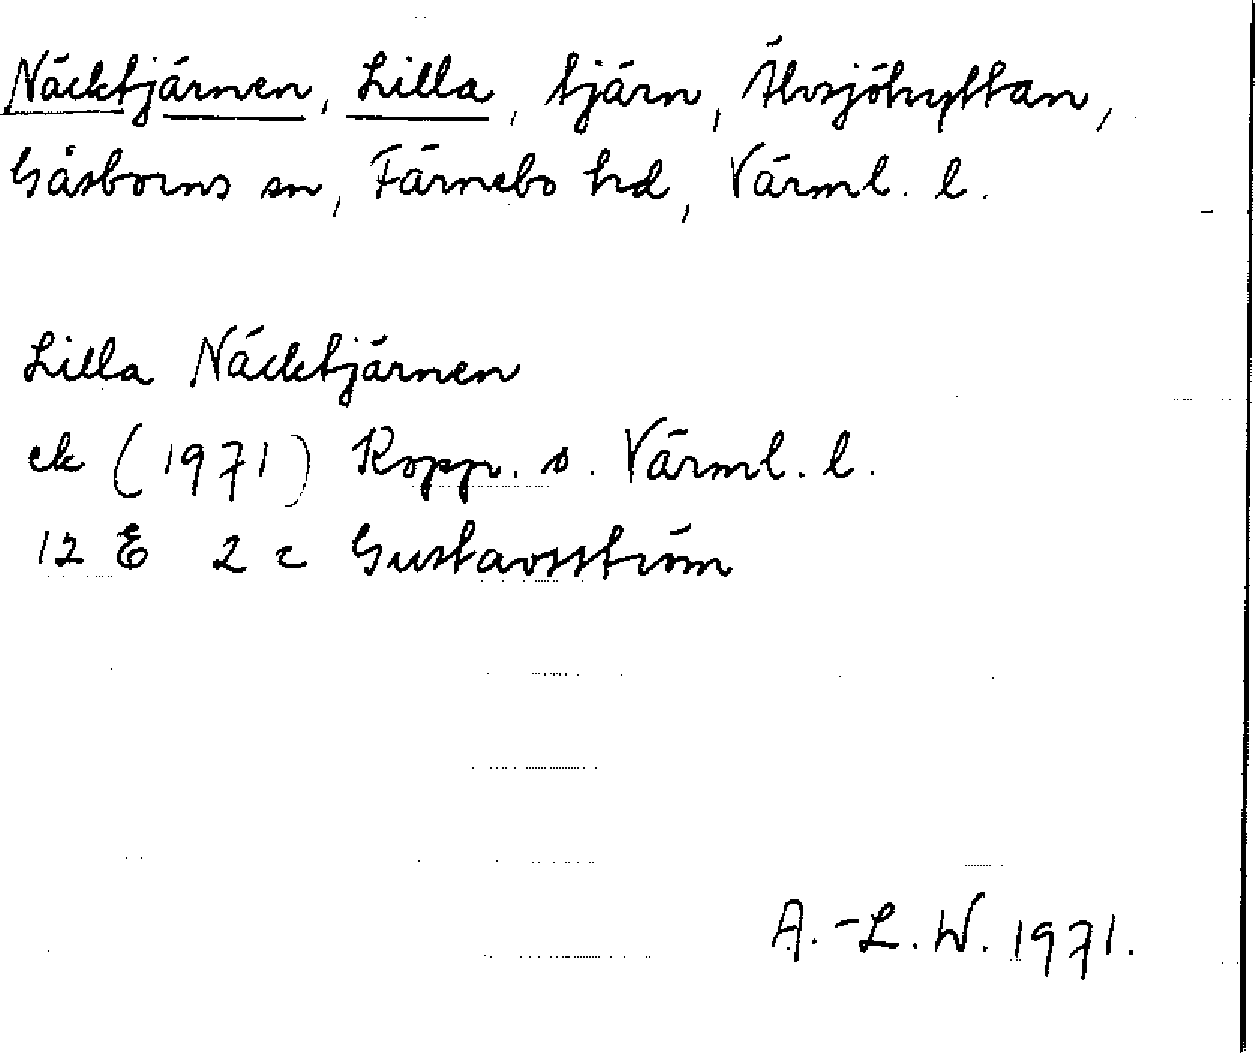 Näcktjärnen, Lilla, tjärn, Älvsjöhyttan,
Gåsborns sn, Färnebo hd, Värml. l.
Lilla Näcktjärnen
ek (1971) Kopp. o. Värml. l.
12 E 2 c Gustavsström
A.-L. W. 1971.